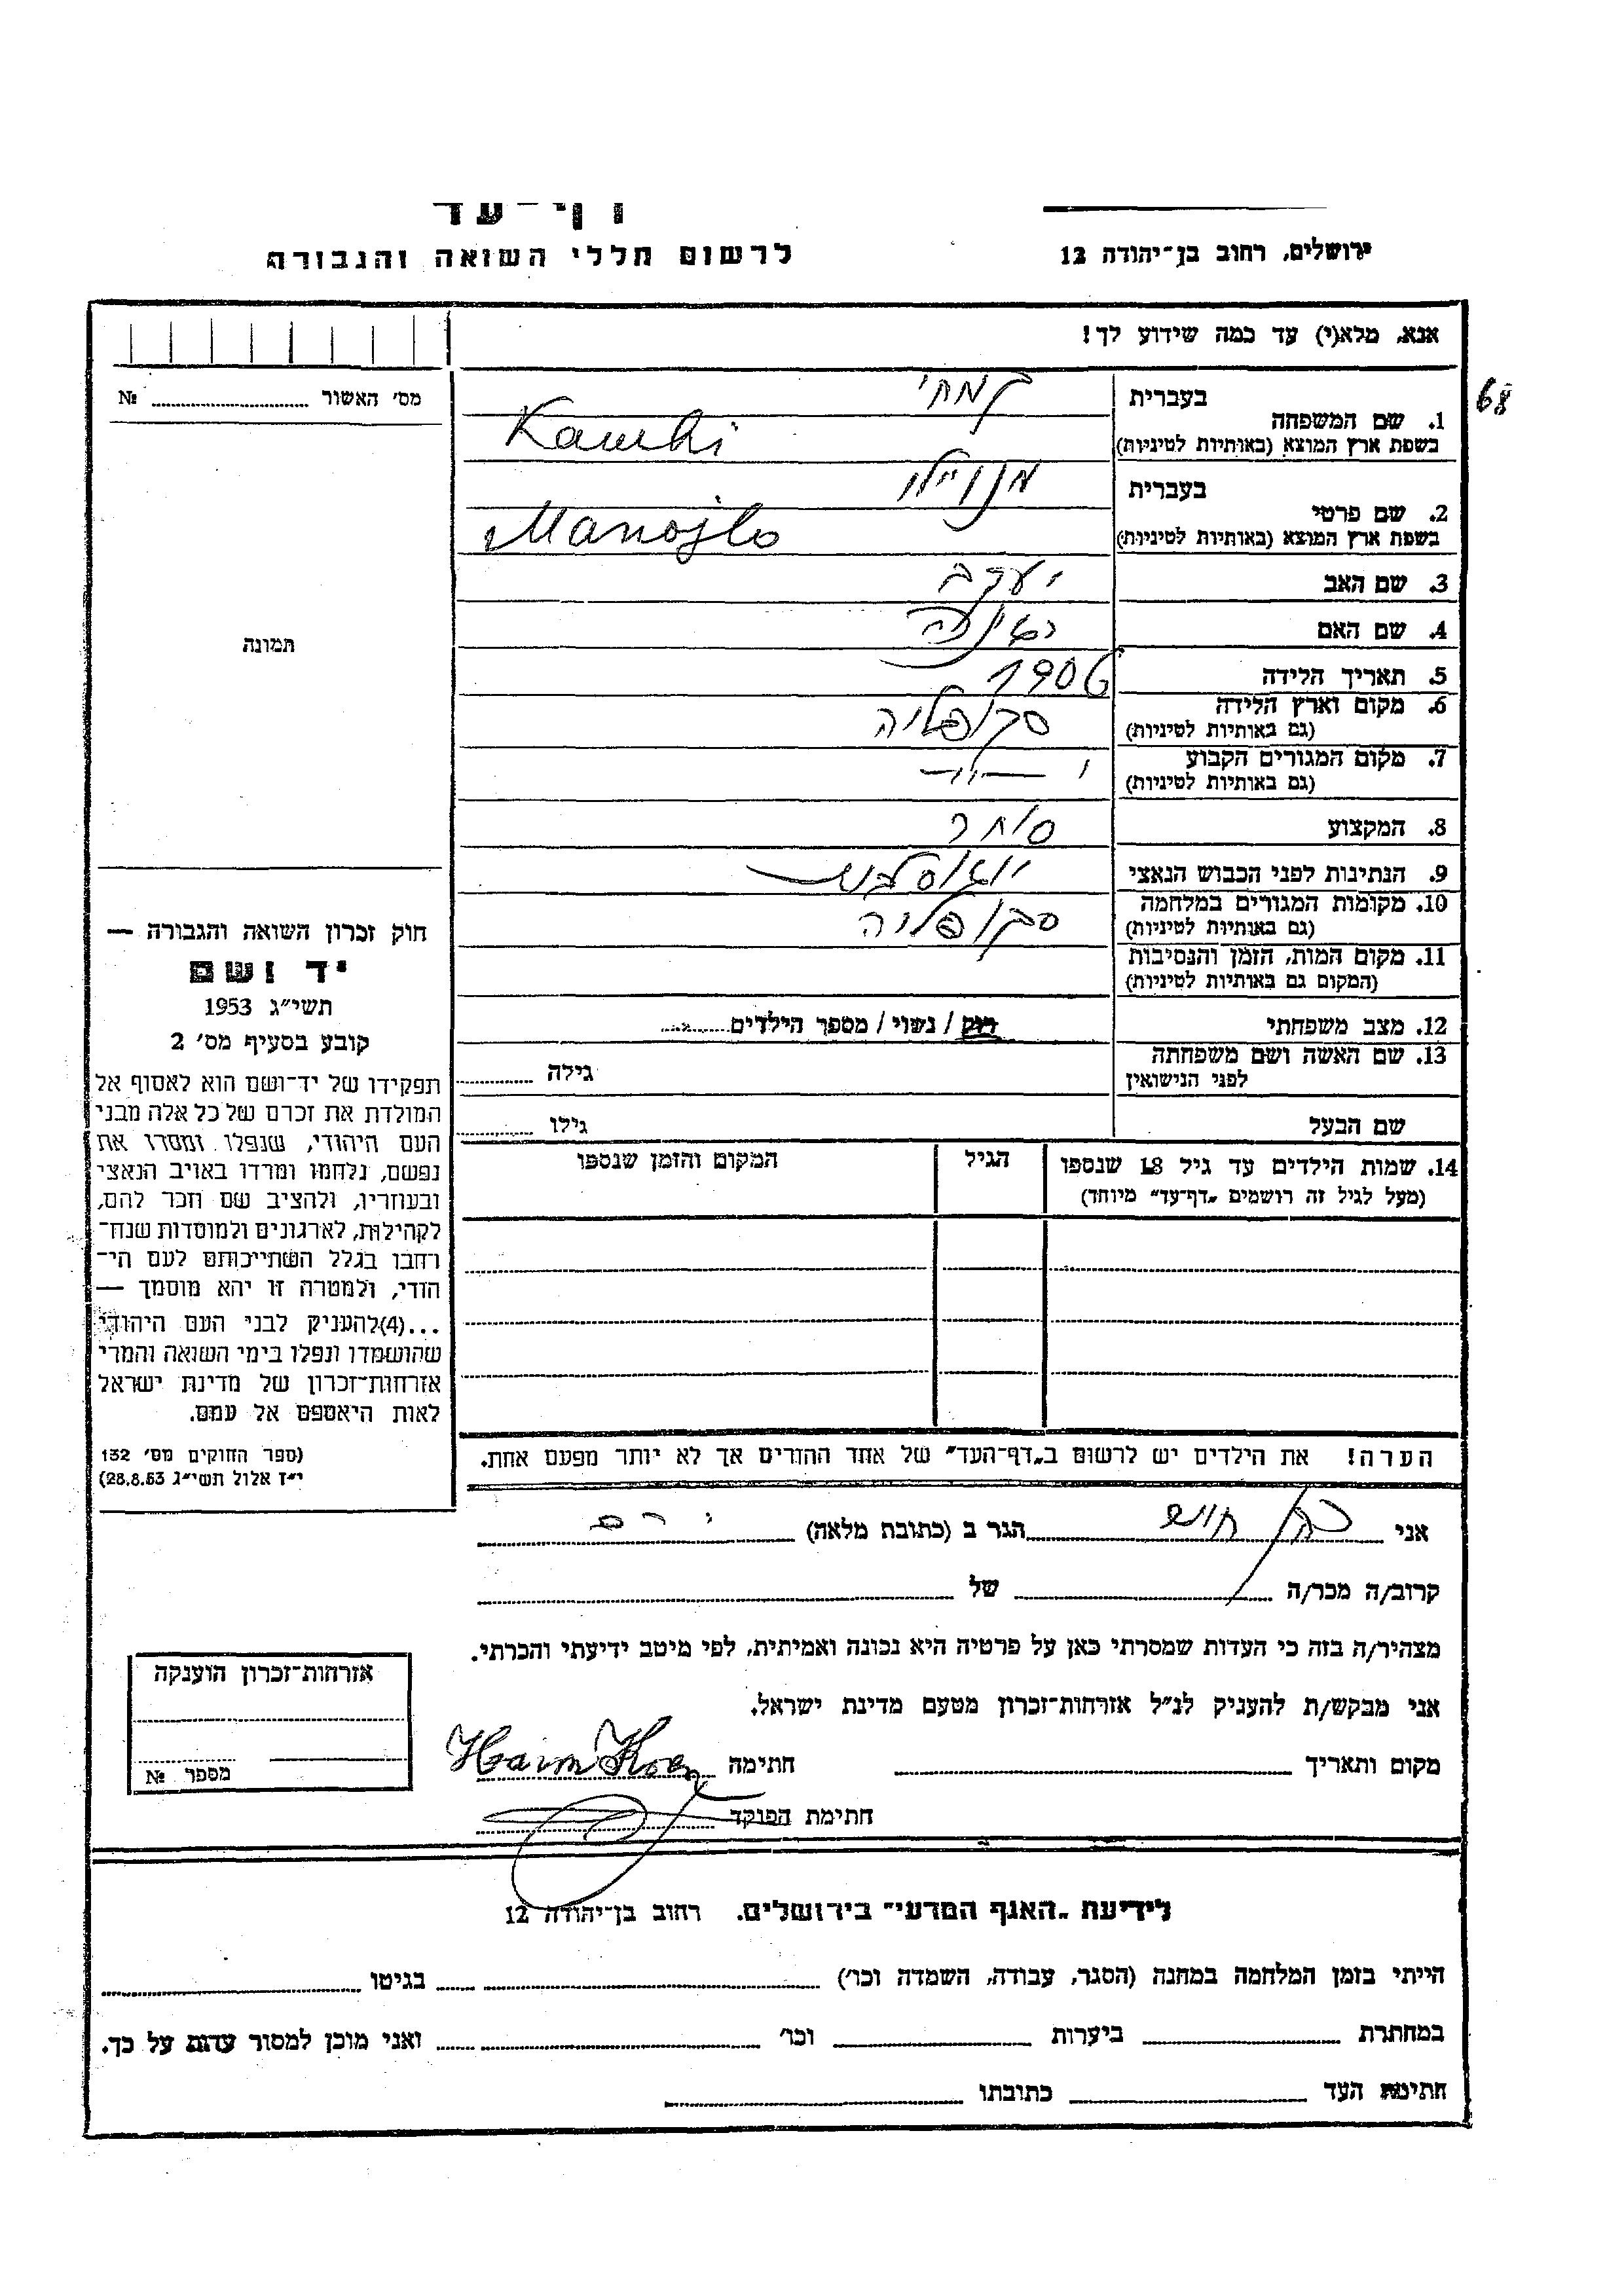 דף-עד
לרשום חללי השואה והגבורה
ירושלים, רחוב בן-יהודה 12
אנא, מלא(י) עד כמה שידוע לך!
68
מס' האשור № 
1. שם המשפחה
בעברית קמחי
בשפת ארץ המוצא (באותיות לטיניות) Kamhi
2. שם פרטי
בעברית מנוילו
בשפת ארץ המוצא (באותיות לטיניות) Manojlo
3. שם האב יעקב
4. שם האם
5. תאריך הלידה 1906
6. מקום וארץ הלידה סקופליה
(גם באותיות לטיניות)
7. מקום המגורים הקבוע
(גם באותיות לטיניות)
8. המקצוע סוחר
9. הנתינות לפני הכבוש הנאצי יוגוסלבית
10. מקומות המגורים במלחמה סקופליה
(גם באותיות לטיניות)
11. מקום המות, הזמן והנסיבות
(המקום גם באותיות לטיניות)
12. מצב משפחתי רוק / נשוי / מספר הילדים
13. שם האשה ושם משפחתה
לפני הנישואין
גילה
שם הבעל גילו
14. שמות הילדים עד גיל 18 שנספו
(מעל לגיל זה רושמים „דף-עד" מיוחד)
הגיל
המקום והזמן שנספו
הערה! את הילדים יש לרשום ב„דף-העד" של אחד ההורים אך לא יותר מפעם אחת.
תמונה
חוק זכרון השואה והגבורה —
יד ושם
תשי"ג 1953
קובע בסעיף מס' 2
תפקידו של יד-ושם הוא לאסוף אל
המולדת את זכרם של כל אלה מבני
העם היהודי, שנפלו ומסרו את
נפשם, נלחמו ומרדו באויב הנאצי
ובעוזריו, ולהציב שם וזכר להם,
לקהילות, לארגונים ולמוסדות שנח-
רחבו בגלל השתייכותם לעם הי-
הודי, ולמטרה זו יהא מוסמך —
...(4)להעניק לבני העם היהודי
שהושמדו ונפלו בימי השואה והמרי
אזרחות-זכרון של מדינת ישראל
לאות היאספם אל עמם.
(ספר החוקים מס' 132
י"ז אלול תשי"ג 28.8.53)
אני כהן חיים הגר ב (כתובת מלאה)
קרוב/ה מכר/ה של
מצהיר/ה בזה כי העדות שמסרתי כאן על פרטיה היא נכונה ואמיתית, לפי מיטב ידיעתי והכרתי.
אני מבקש/ת להעניק לנ"ל אזרחות-זכרון מטעם מדינת ישראל.
מקום ותאריך חתימה Haim Koen
חתימת הפוקד
אזרחות-זכרון הוענקה
מספר №
לידיעת „האגף המדעי" בירושלים. רחוב בן-יהודה 12
הייתי בזמן המלחמה במחנה (הסגר, עבודה, השמדה וכו') בגיטו
במחתרת ביערות וכו' ואני מוכן למסור עדות על כך.
חתימת העד כתובתו